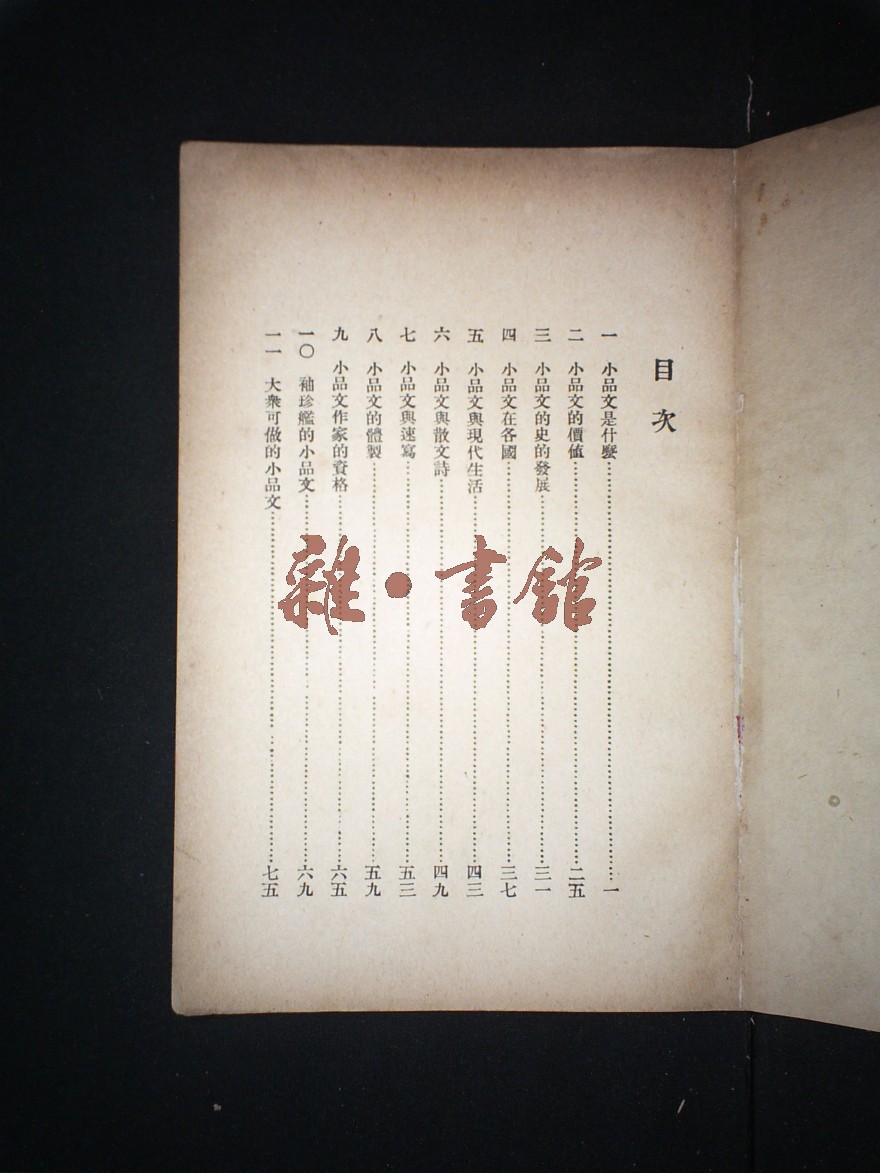 目次
一 小品文是什麼……一
二 小品文的價値……二五
三 小品文的史的發展……三一
四 小品文在各國……三七
五 小品文與現代生活……四三
六 小品文與散文詩……四九
七 小品文與速寫……五三
八 小品文的體製……五九
九 小品文作家的資格……六五
一〇 袖珍艦的小品文……六九
一一 大衆可做的小品文……七五
雜·書館